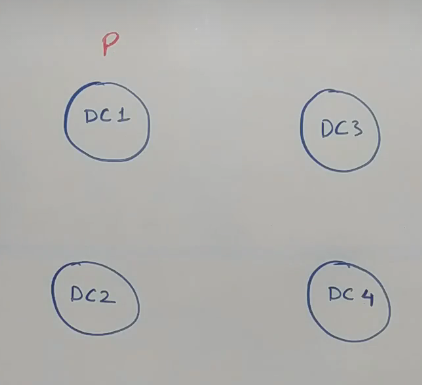 P
DC1
DC3
DC2
DC4